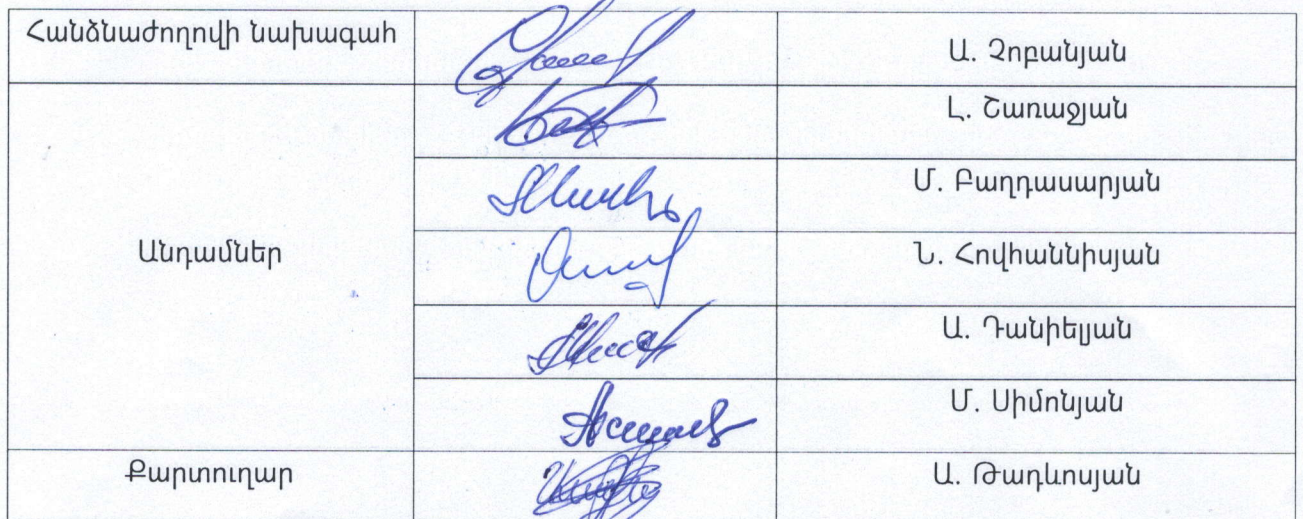 Հանձնաժողովի նախագահ
Ա. Չոբանյան
Լ. Շառաջյան
Մ. Բաղդասարյան
Անդամներ
Ն. Հովհաննիսյան
Ա. Դանիելյան
Մ. Սիմոնյան
Քարտուղար
Ա. Թադևոսյան